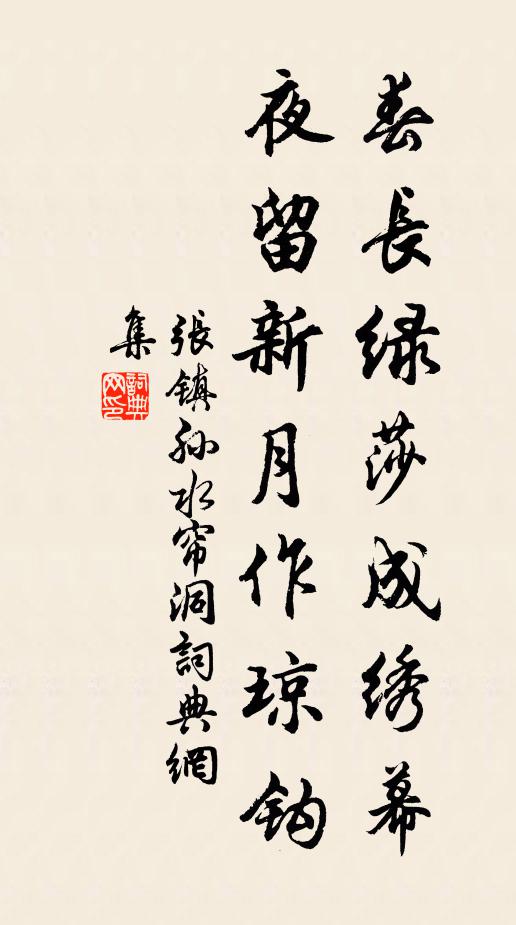 春長緑莎成绣幕
夜留新月作琼鈎
張鎮孙水帘洞詞典網
集
詞典网印